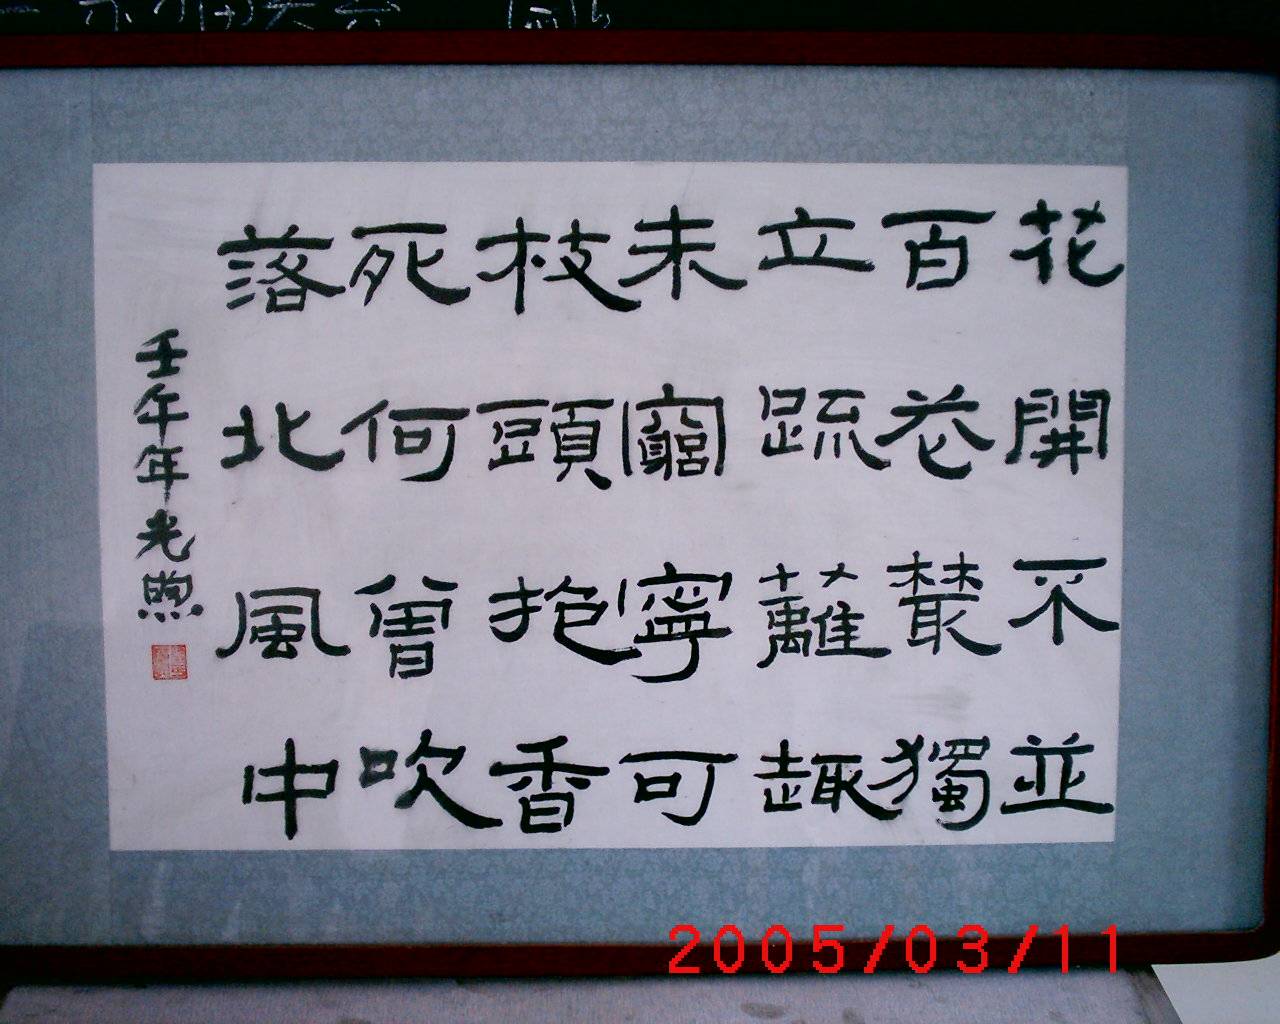 花開不並
百花叢獨
立疏蘺趣
未窮寧可
枝頭抱香
死何曾吹
落北風中
壬午年光煦
2005/03/11